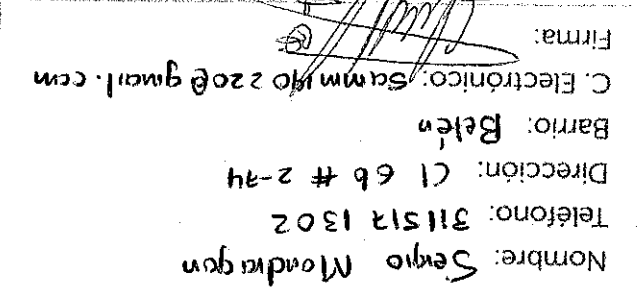 Nombre: Sergio Mondragon
Teléfono: 311517 1302
Dirección: Cl 6b # 2-74
Barrio: Belén
C. Electrónico: Samm190220@gmail.com
Firma: